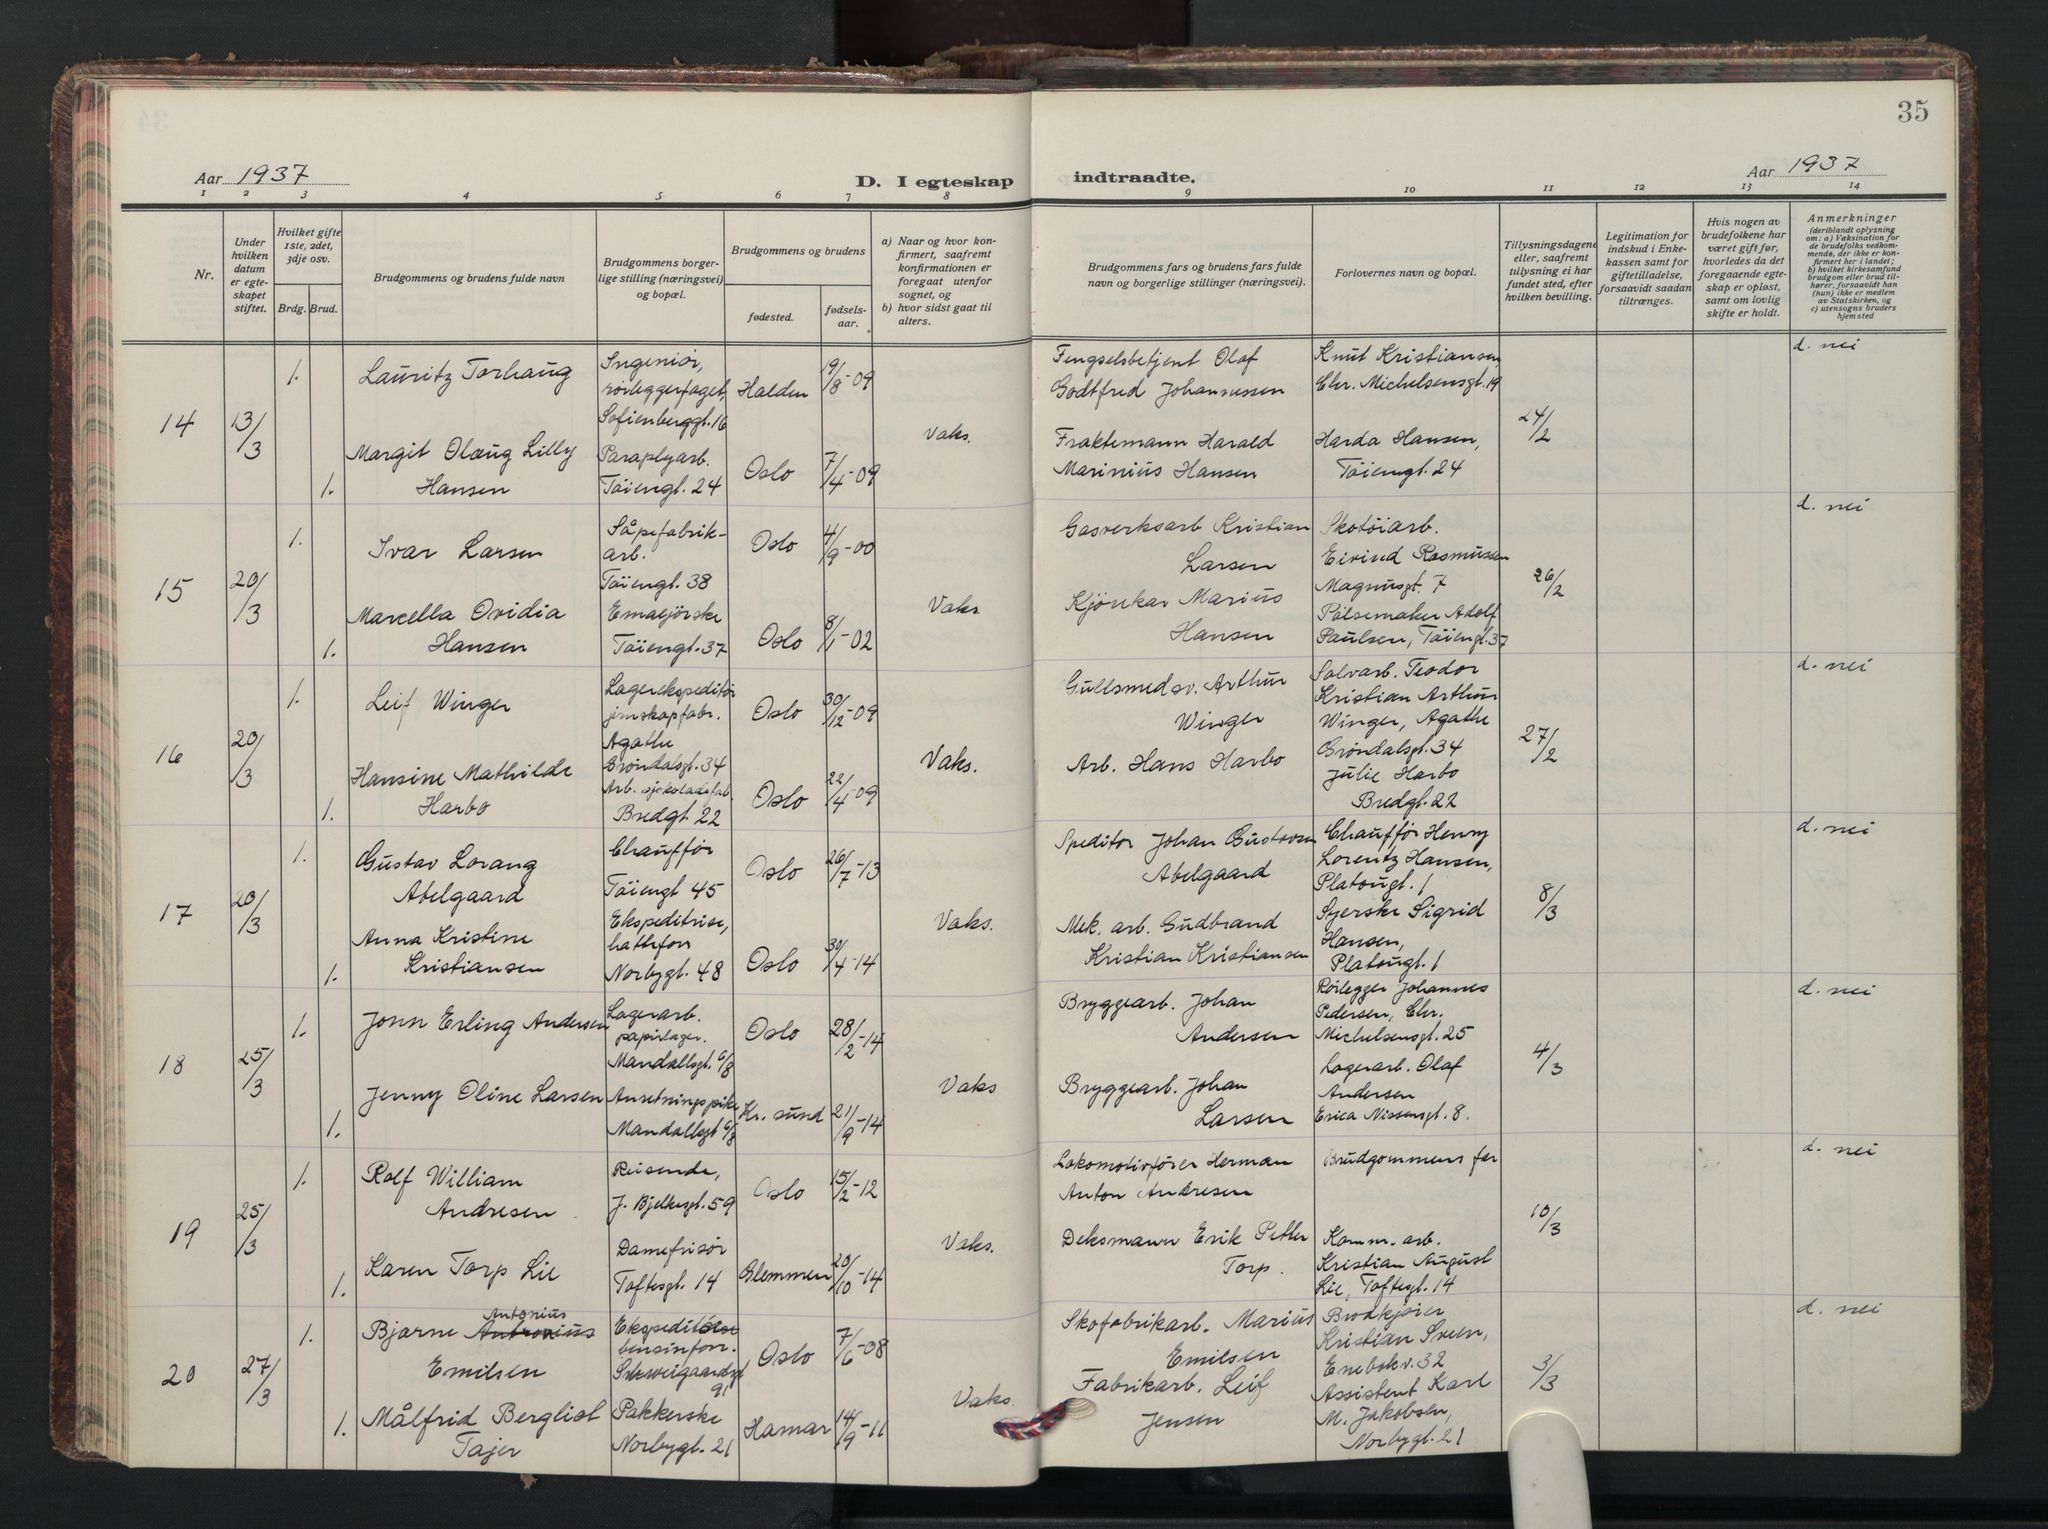 35
Aar 1937
D. I egteskap indtraadte.
Aar 1937
1 2 3 4 5 6 7 8 9 10 11 12 13 14
Nr.
Under hvilken datum er egteskapet stiftet.
Hvilket gifte 1ste, 2det, 3dje osv.
Brdg. Brud.
Brudgommens og brudens fulde navn
Brudgommens borgerlige stilling (næringsvei) og bopæl.
Brudgommens og brudens
fødested.
fødselsaar.
a) Naar og hvor konfirmert, saafremt konfirmationen er foregaat utenfor sognet, og
b) hvor sidst gaat til alters.
Brudgommens fars og brudens fars fulde navn og borgerlige stillinger (næringsvei).
Forlovernes navn og bopæl.
Tillysningsdagene eller, saafremt tillysning ei har fundet sted, efter hvilken bevilling.
Legitimation for indskud i Enkekassen samt for giftetilladelse, forsaavidt saadan tiltrænges.
Hvis nogen av brudefolkene har været gift før, hvorledes da det foregaaende egteskap er opløst, samt om lovlig skifte er holdt.
Anmerkninger
(deriblandt oplysning om: a) Vaksination for de brudefolks vedkommende, der ikke er konfirmert her i landet;
b) hvilket kirkesamfund brudgom eller brud tilhører, forsaavidt han (hun) ikke er medlem av Statskirken, og
c) utensogns bruders hjemsted
14 13/3
1. Lauritz Torhaug Ingeniør, rørleggerfaget, Sofienberggt. 16 Halden 19/8-09
Fengselsbetjent Olaf Godtfred Johannessen
Knut Kristiansen, Chr. Michelsensgt. 19
d. nei
1. Margit Olaug Lilly Hansen Paraplyarb. Tøiengt. 24 Oslo 7/4-09
Vaks.
Fraktemann Harald Marinius Hansen
Harda Hansen, Tøiengt. 24
24/2
15 20/3
1. Ivar Larsen Såpefabrik-arb. Tøiengt. 38 Oslo 4/9-00
Gasverksarb Kristian Larsen
Skotøiarb. Eivind Rasmussen Magnusgt. 7
d. nei
1. Marcella Ovidia Hansen Emaljørske Tøiengt. 37 Oslo 8/1-02
Vaks.
Kjørekar Marius Hansen
Pølsemaker Adolf Paulsen, Tøiengt. 37
26/2
16 20/3
1. Leif Winger Lagerekspeditør jernskapfabr. Agathe Grøndalsgt. 34 Oslo 30/12-09
Gullsmedsv. Arthur Winger
Sølvarb. Teodor Kristian Arthur Winger, Agathe Grøndalsgt. 34
d. nei
1. Hansine Mathilde Harbo Arb. sjokoladefab. Bredgt. 22 Oslo 22/4-09
Vaks.
Arb. Hans Harbo
Julie Harbo Bredgt. 22
27/2
17 20/3
1. Gustav Lorang Abelgaard Chauffør Tøiengt 45 Oslo 26/7-13
Speditør Johan Gustavsen Abelgaard
Chauffør Henry Lorentz Hansen, Platougt. 1
d. nei
1. Anna Kristine Kristiansen Ekspeditrise, hatteforr Norbygt. 48 Oslo 30/4-14
Vaks.
Mek. arb. Gudbrand Kristian Kristiansen
Syerske Sigrid Hansen, Platougt. 1
8/3
18 25/3
1. John Erling Andersen Lagerarb. papirlager. Mandallsgt. 6/8 Oslo 28/2-14
Bryggearb. Johan Andersen
Rørlegger Johannes Pedersen, Chr. Michelsensgt. 25
d. nei
1. Jenny Oline Larsen Anretningspike Mandallsgt 6/8 Kr. sund 21/9-14
Vaks
Bryggearb. Johan Larsen
Lagerarb. Olaf Andersen Erica Nissensgt. 8.
4/3
19 25/3
1. Rolf William Andresen Reisende, J. Bjelkesgt. 59 Oslo 15/2-12
Lokomotivfører Herman Anton Andresen
Brudgommens far
d. nei
1. Karen Torp Lie Damefrisør Toftesgt. 14 Glemmen 20/10-14
Vaks.
Deksmann Erik Petter Torp.
Komm. arb. Kristian August Lie, Toftesgt. 14
10/3
20 27/3
1. Bjarne Antonius Emilsen Ekspeditør bensinforr. Schweigaardsgt 91 Oslo 7/6-08
Skofabrikarb. Marius Emilsen
Brødkjører Kristian Sveen, Enebakv. 32
d. nei
1. Målfrid Bergliot Tajer Pakkerske Norbygt. 21 Hamar 14/9-11
Vaks.
Fabrikarb. Leif Jensen
Assistent Karl M. Jakobsen, Norbygt. 21
3/3